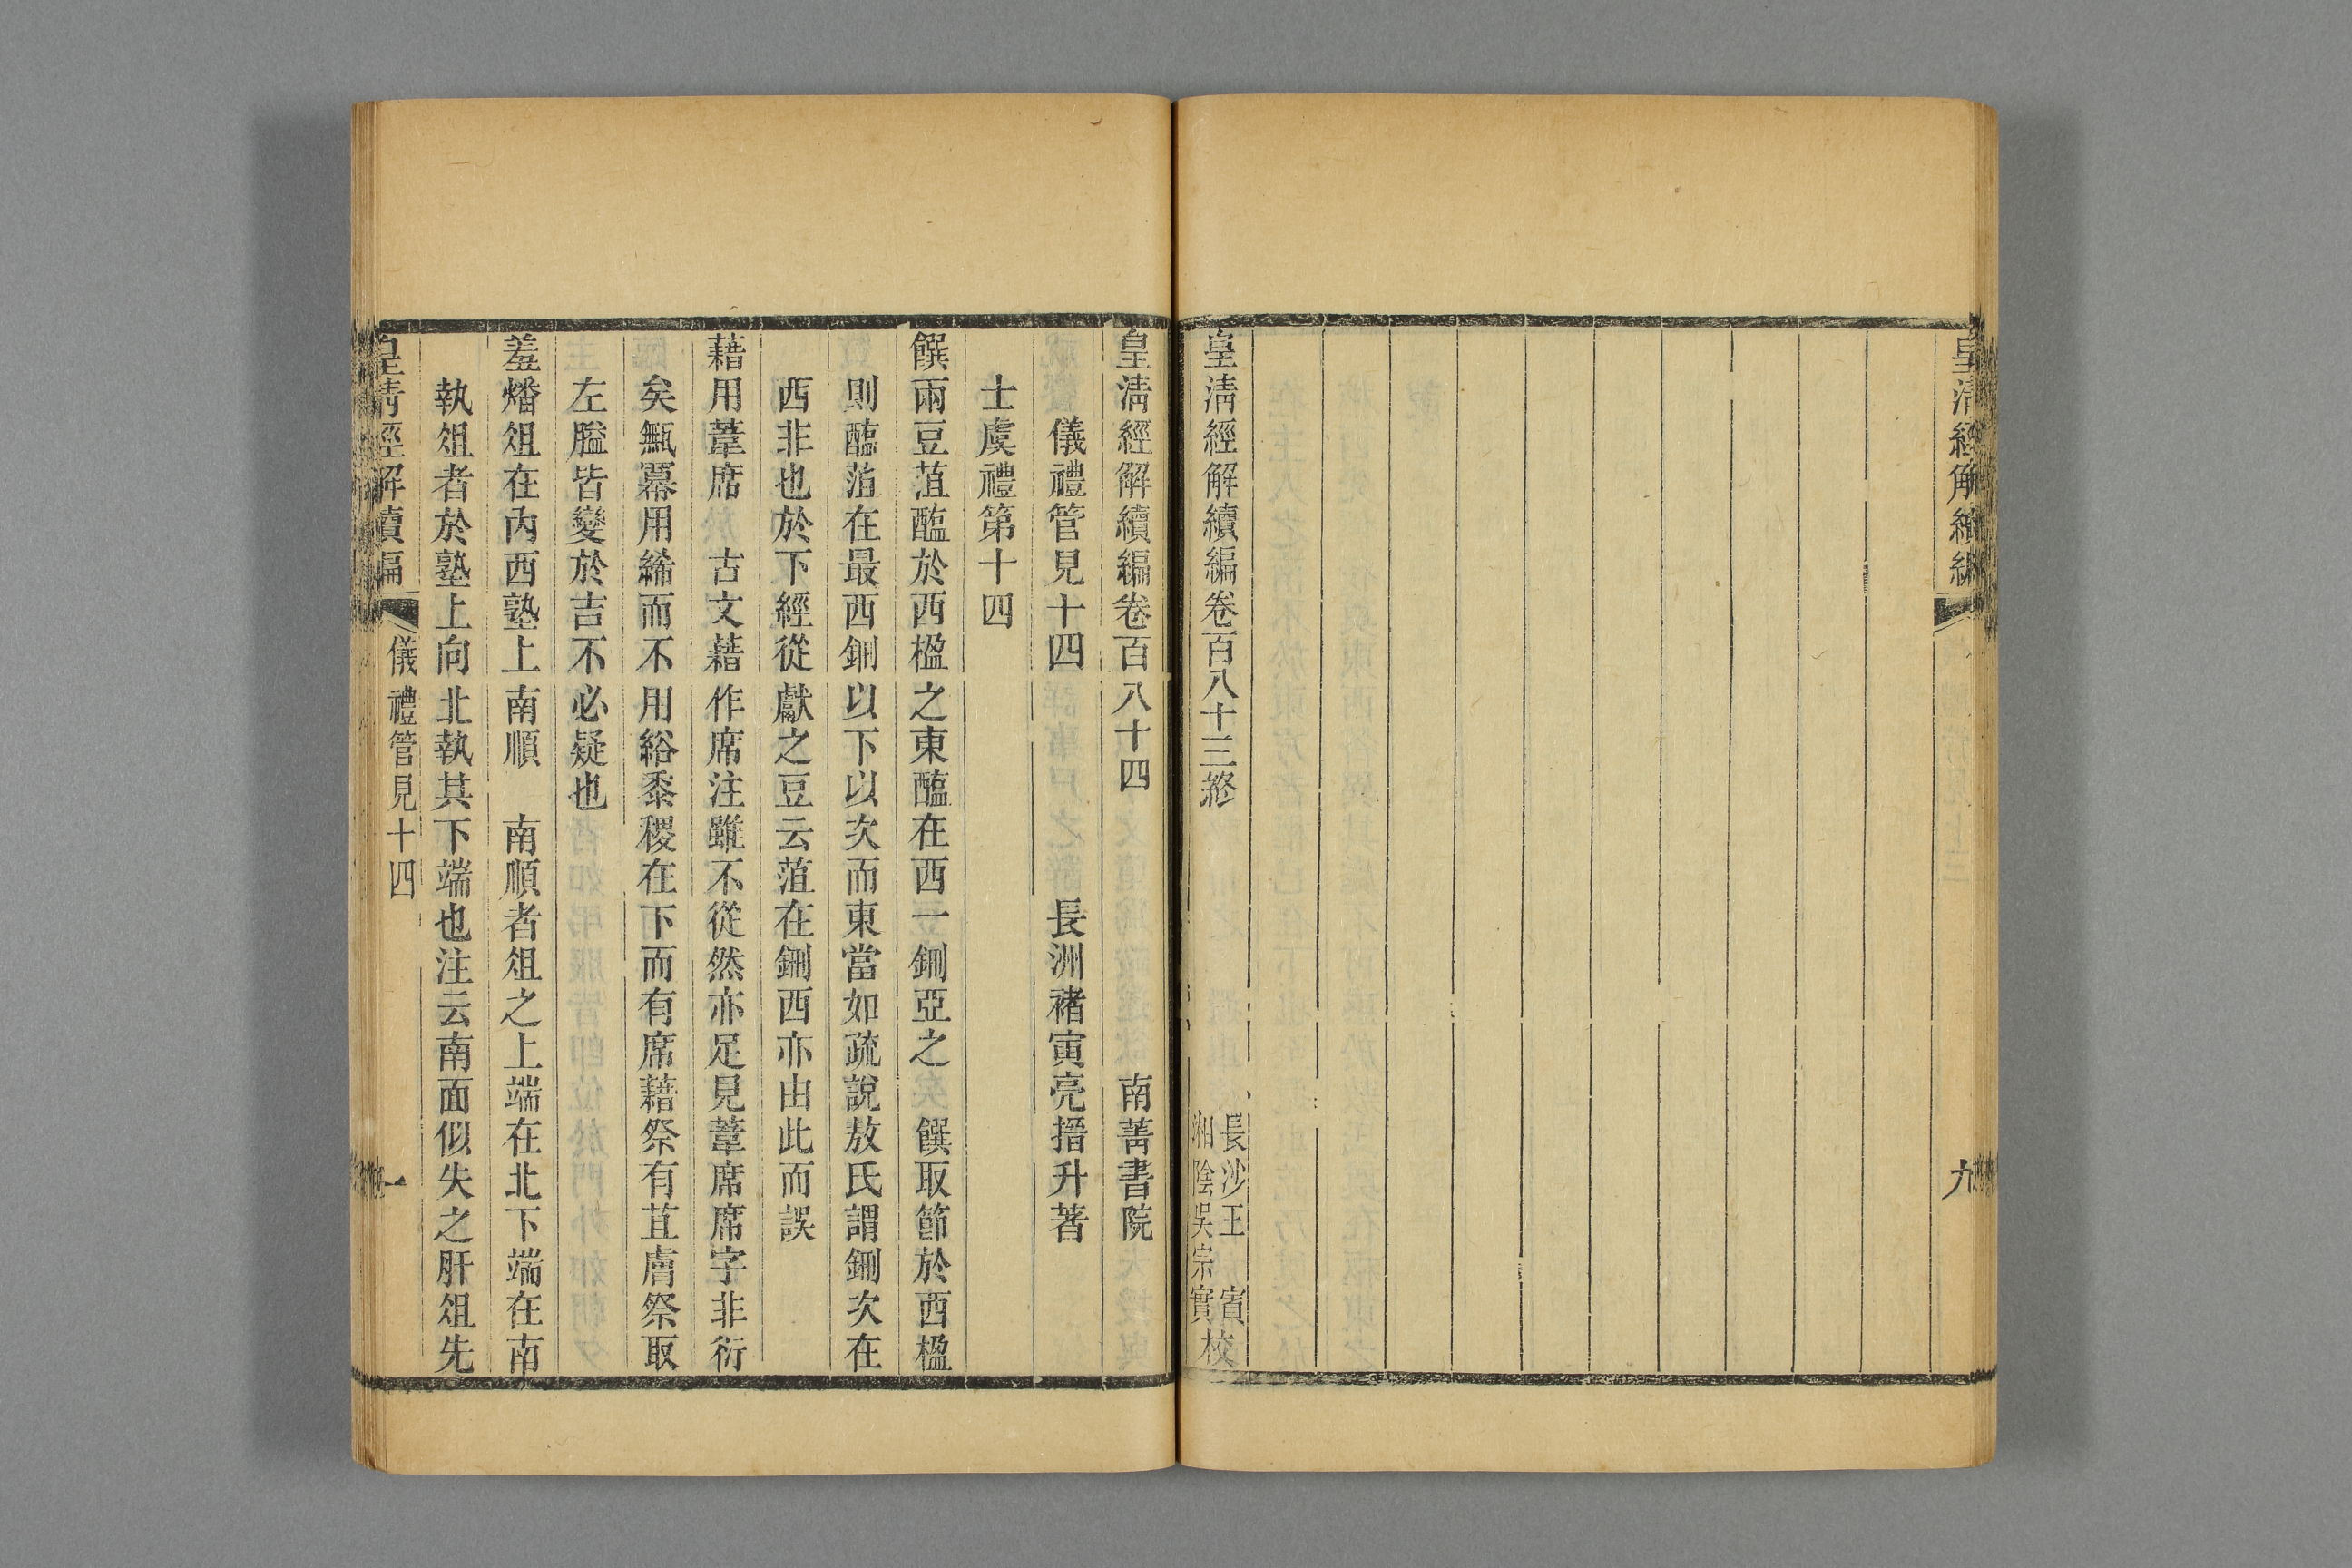 皇清經解續編
九
皇清經解續編卷百八十三終
長沙王　賓
湘陰吳宗實校
皇清經解續編卷百八十四　南菁書院
儀禮管見十四　長洲褚寅亮搢升著
士虞禮第十四
饌兩豆菹醢於西楹之東醢在西一鉶亞之　饌取節於西楹
則醢菹在最西鉶以下以次而東當如疏說敖氏謂鉶次在
西非也於下經從獻之豆云菹在鉶西亦由此而誤
藉用葦席　古文藉作席注雖不從然亦足見葦席席字非衍
矣甒冪用絺而不用綌黍稷在下而有席藉祭有苴膚祭取
左膉皆變於吉不必疑也
羞燔俎在內西塾上南順　南順者俎之上端在北下端在南
執俎者於塾上向北執其下端也注云南面似失之肝俎先
皇清經解續編
儀禮管見十四
一